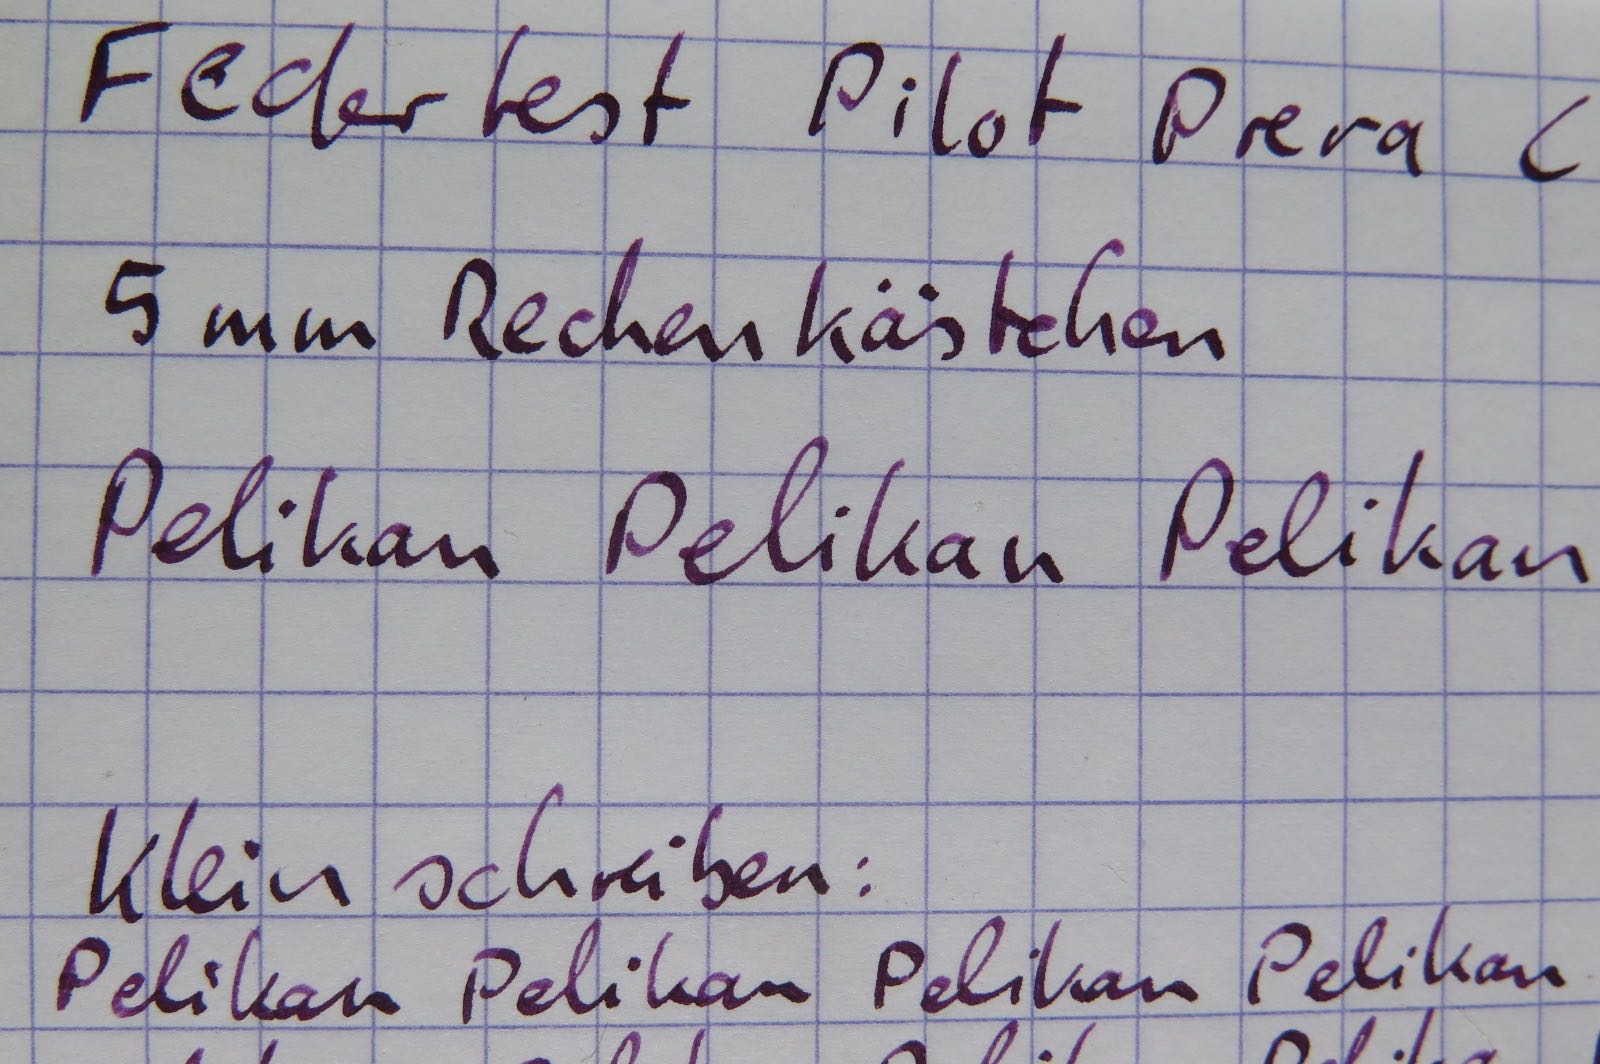 Federtest Pilot Prera
5mm Rechenkästchen
Pelikan Pelikan Pelikan
Klein schreiben:
Pelikan Pelikan Pelikan Pelikan